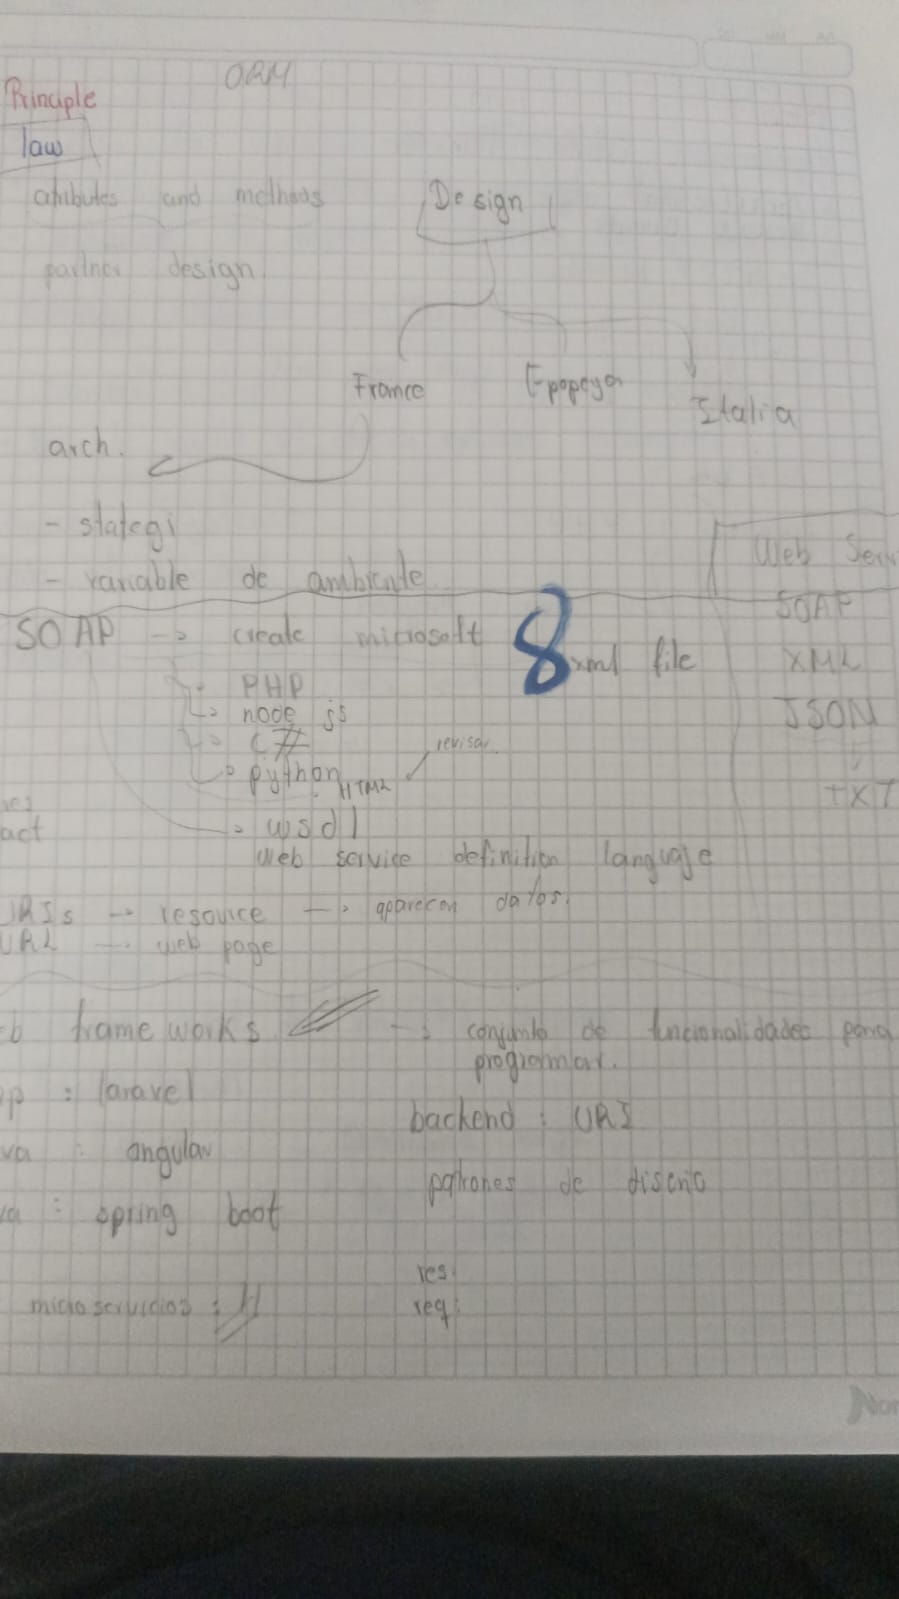 ORM
Principle
law
atributes and methods
Design
partner design
France
Italia
arch.
- stategi
- variable de ambiente
Web Serv
SOAP
XML
JSON
TXT
SOAP -> create microsoft 8 xml file
PHP
node js
C#
python HTML revisar
wsdl
act
web service definition languaje
URIs -> resource -> aparecen datos.
URL -> web page
frame works -> conjunto de funcionalidades para
programar.
: laravel
backend : URI
va : angular
patrones de diseño
va : spring boot
res:
microservicios :
req: